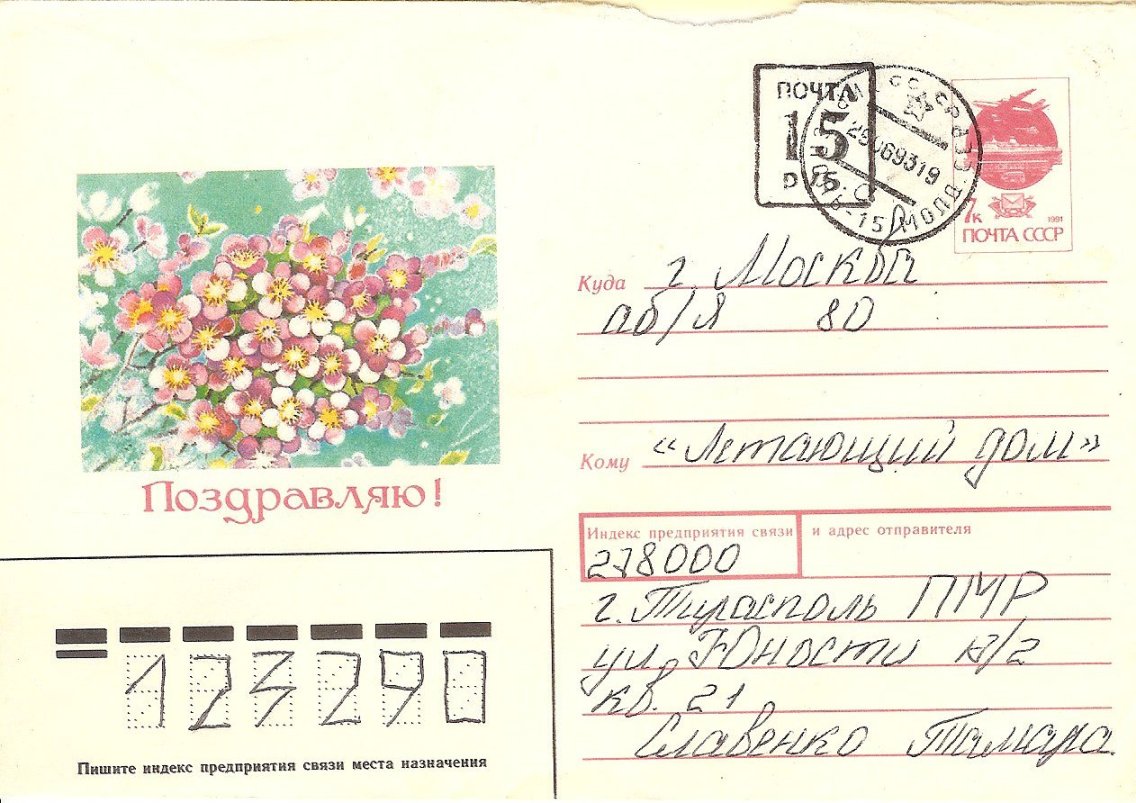 ПОЧТА
15
7к
1991
ПОЧТА СССР
Куда г. Москва
аб/я 80
Кому «Летающий дом»
Поздравляю!
Индекс предприятия связи и адрес отправителя
278000
г. Тирасполь ПМР
ул. Юности
кв. 21
Славенко Тамара
123290
Пишите индекс предприятия связи места назначения